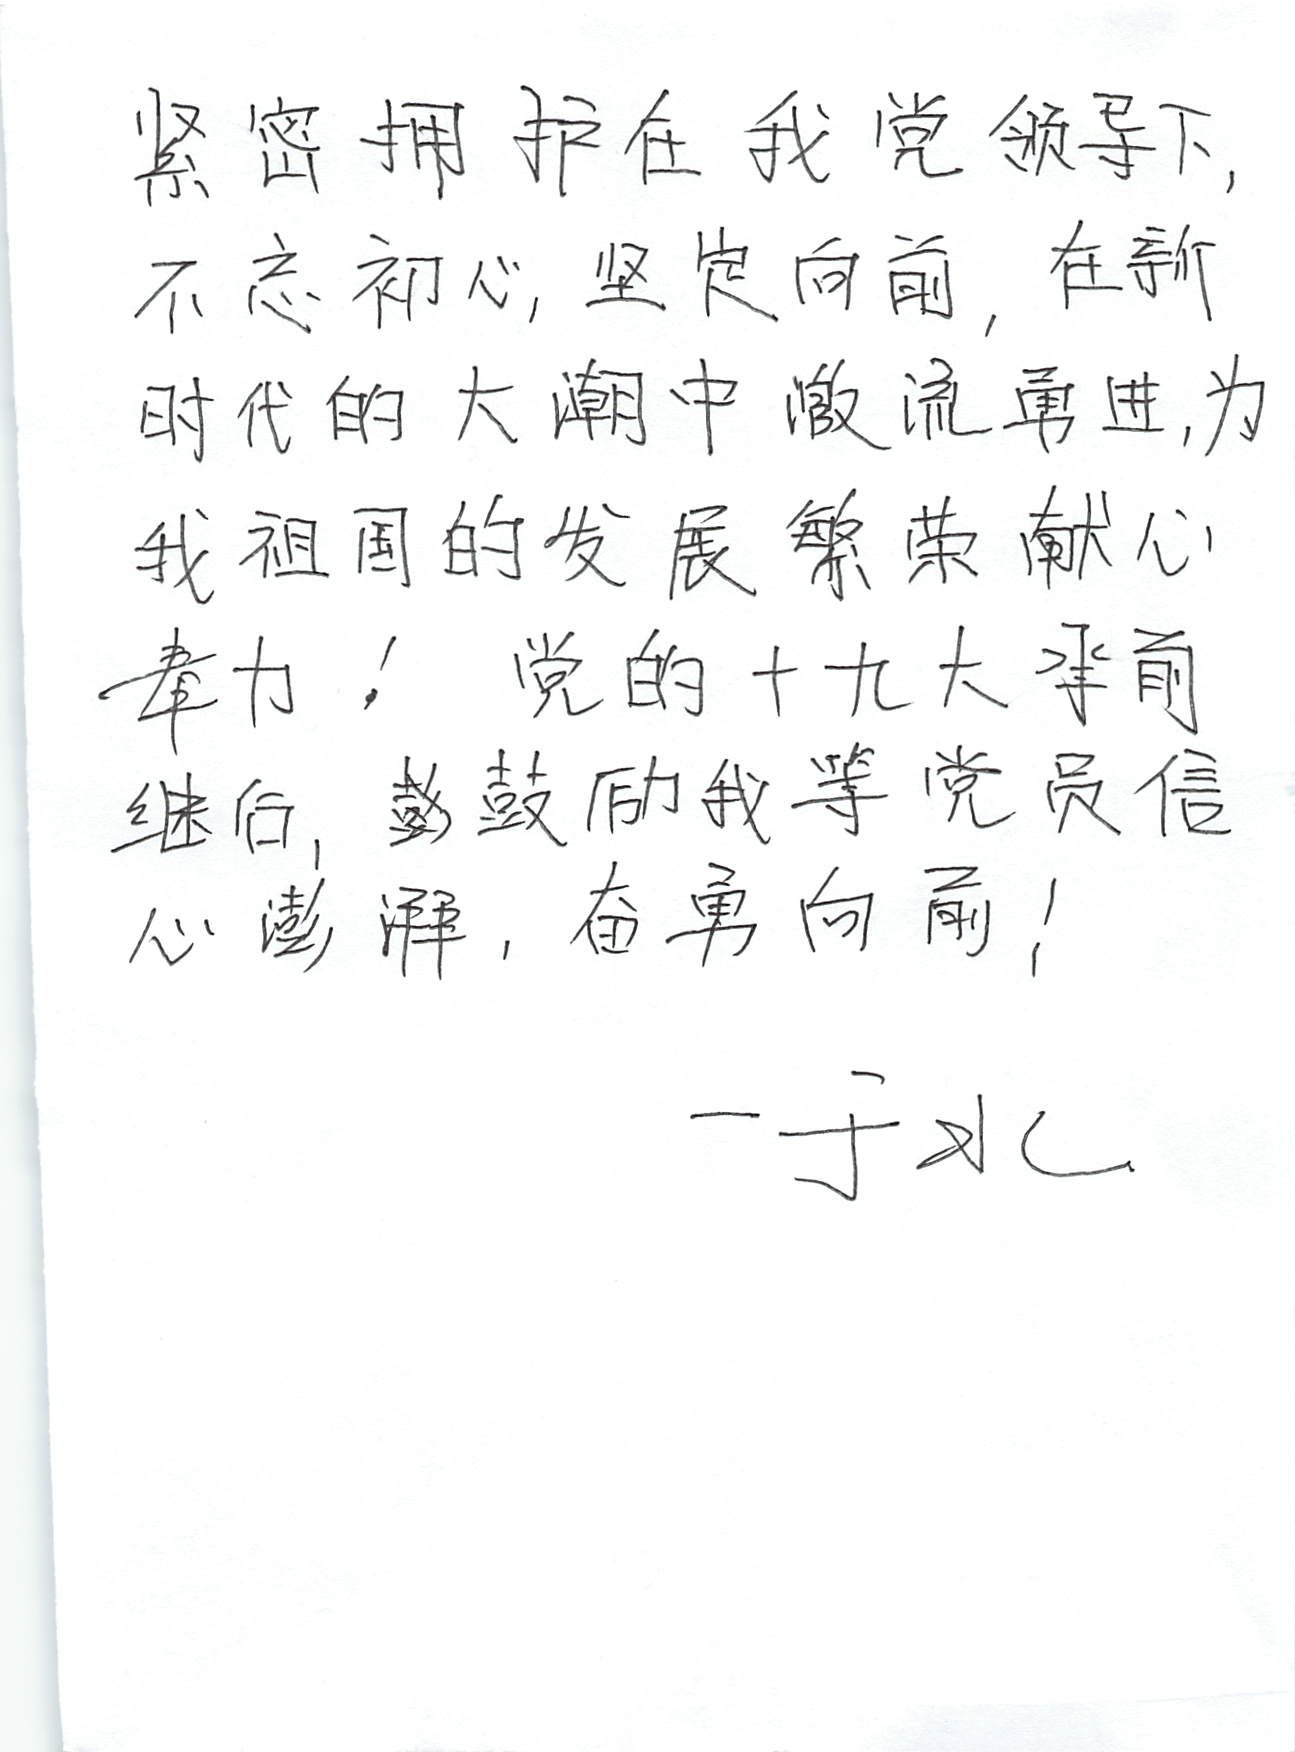 紧密拥护在我党领导下,
不忘初心,坚定向前,在新
时代的大潮中激流勇进,为
我祖国的发展繁荣献心
奉力! 党的十九大承前
继后,鼓励我等党员信
心澎湃,奋勇向前!
一于水